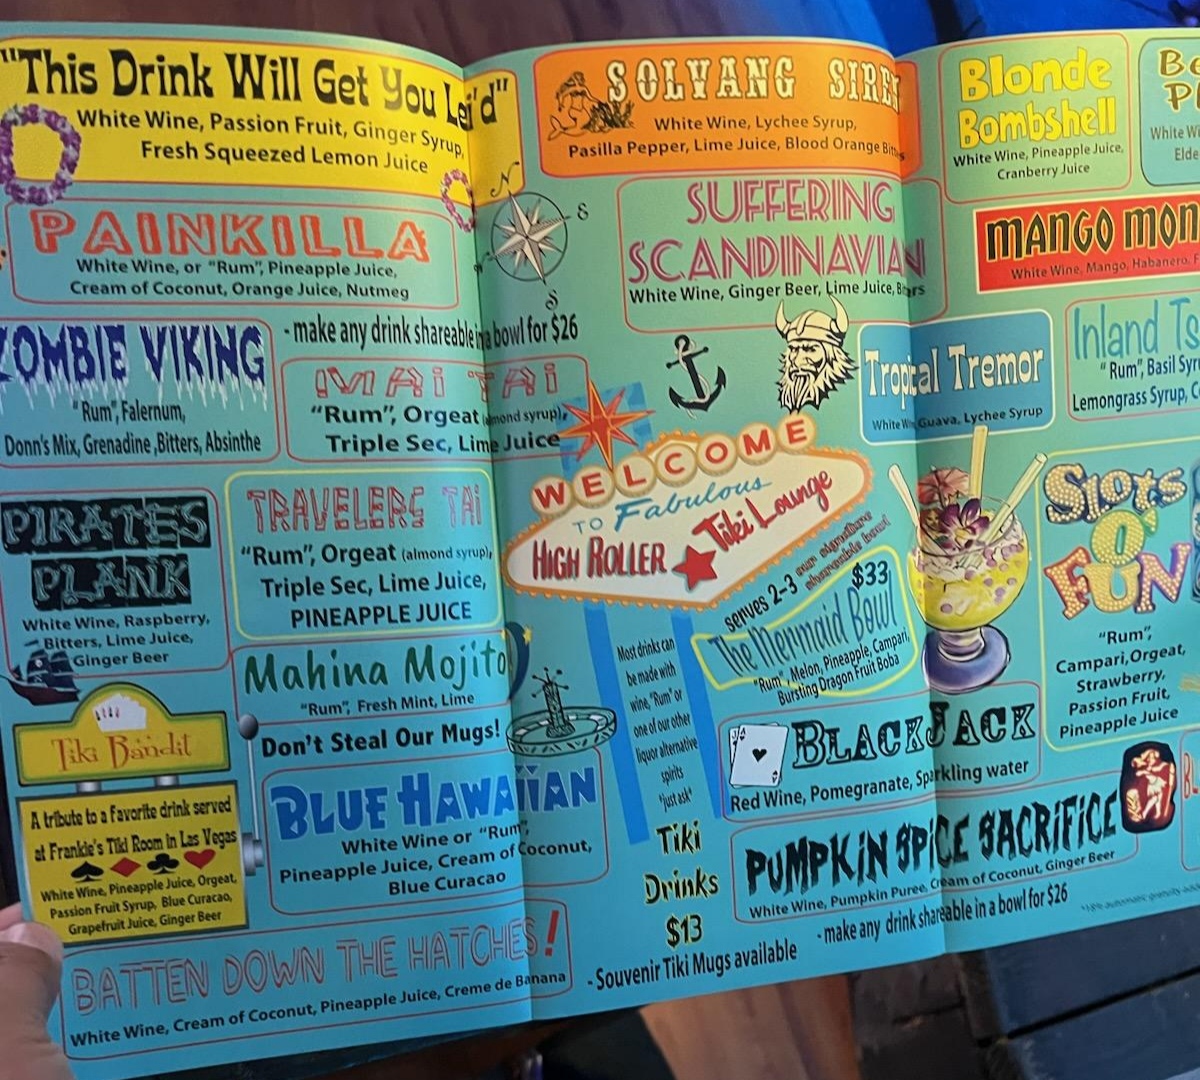 "This Drink Will Get You Lei'd"
White Wine, Passion Fruit, Ginger Syrup,
Fresh Squeezed Lemon Juice
PAINKILLA
White Wine, or "Rum", Pineapple Juice,
Cream of Coconut, Orange Juice, Nutmeg
ZOMBIE VIKING
"Rum", Falernum,
Donn's Mix, Grenadine ,Bitters, Absinthe
- make any drink shareable in a bowl for $26
MAI TAI
"Rum", Orgeat (almond syrup),
Triple Sec, Lime Juice
PIRATES
PLANK
White Wine, Raspberry,
Bitters, Lime Juice,
Ginger Beer
TRAVELERS TAI
"Rum", Orgeat (almond syrup),
Triple Sec, Lime Juice,
PINEAPPLE JUICE
Mahina Mojito
"Rum", Fresh Mint, Lime
Don't Steal Our Mugs!
Tiki Bandit
A tribute to a favorite drink served
at Frankie's Tiki Room in Las Vegas
White Wine, Pineapple Juice, Orgeat,
Passion Fruit Syrup, Blue Curacao,
Grapefruit Juice, Ginger Beer
BLUE HAWAIIAN
White Wine or "Rum",
Pineapple Juice, Cream of Coconut,
Blue Curacao
BATTEN DOWN THE HATCHES!
White Wine, Cream of Coconut, Pineapple Juice, Creme de Banana
N
S
S
SOLVANG SIREN
White Wine, Lychee Syrup,
Pasilla Pepper, Lime Juice, Blood Orange Bitters
SUFFERING
SCANDINAVIAN
White Wine, Ginger Beer, Lime Juice, Bitters
WELCOME
TO Fabulous
HIGH ROLLER Tiki Lounge
serves 2-3 our signature
shareable bowl
The Mermaid Bowl $33
"Rum", Melon, Pineapple, Campari,
Bursting Dragon Fruit Boba
Most drinks can
be made with
wine, "Rum" or
one of our other
liquor alternative
spirits
"just ask"
Tiki
Drinks
$13
- Souvenir Tiki Mugs available
BLACKJACK
Red Wine, Pomegranate, Sparkling water
PUMPKIN SPICE SACRIFICE
White Wine, Pumpkin Puree, Cream of Coconut, Ginger Beer
- make any drink shareable in a bowl for $26
Blonde
Bombshell
White Wine, Pineapple Juice,
Cranberry Juice
Be
White
Elde
MANGO MON
White Wine, Mango, Habanero,
Tropical Tremor
White Wine, Guava, Lychee Syrup
Inland Ts
"Rum", Basil Syr
Lemongrass Syrup,
Slots
O'
FUN
"Rum",
Campari, Orgeat,
Strawberry,
Passion Fruit,
Pineapple Juice